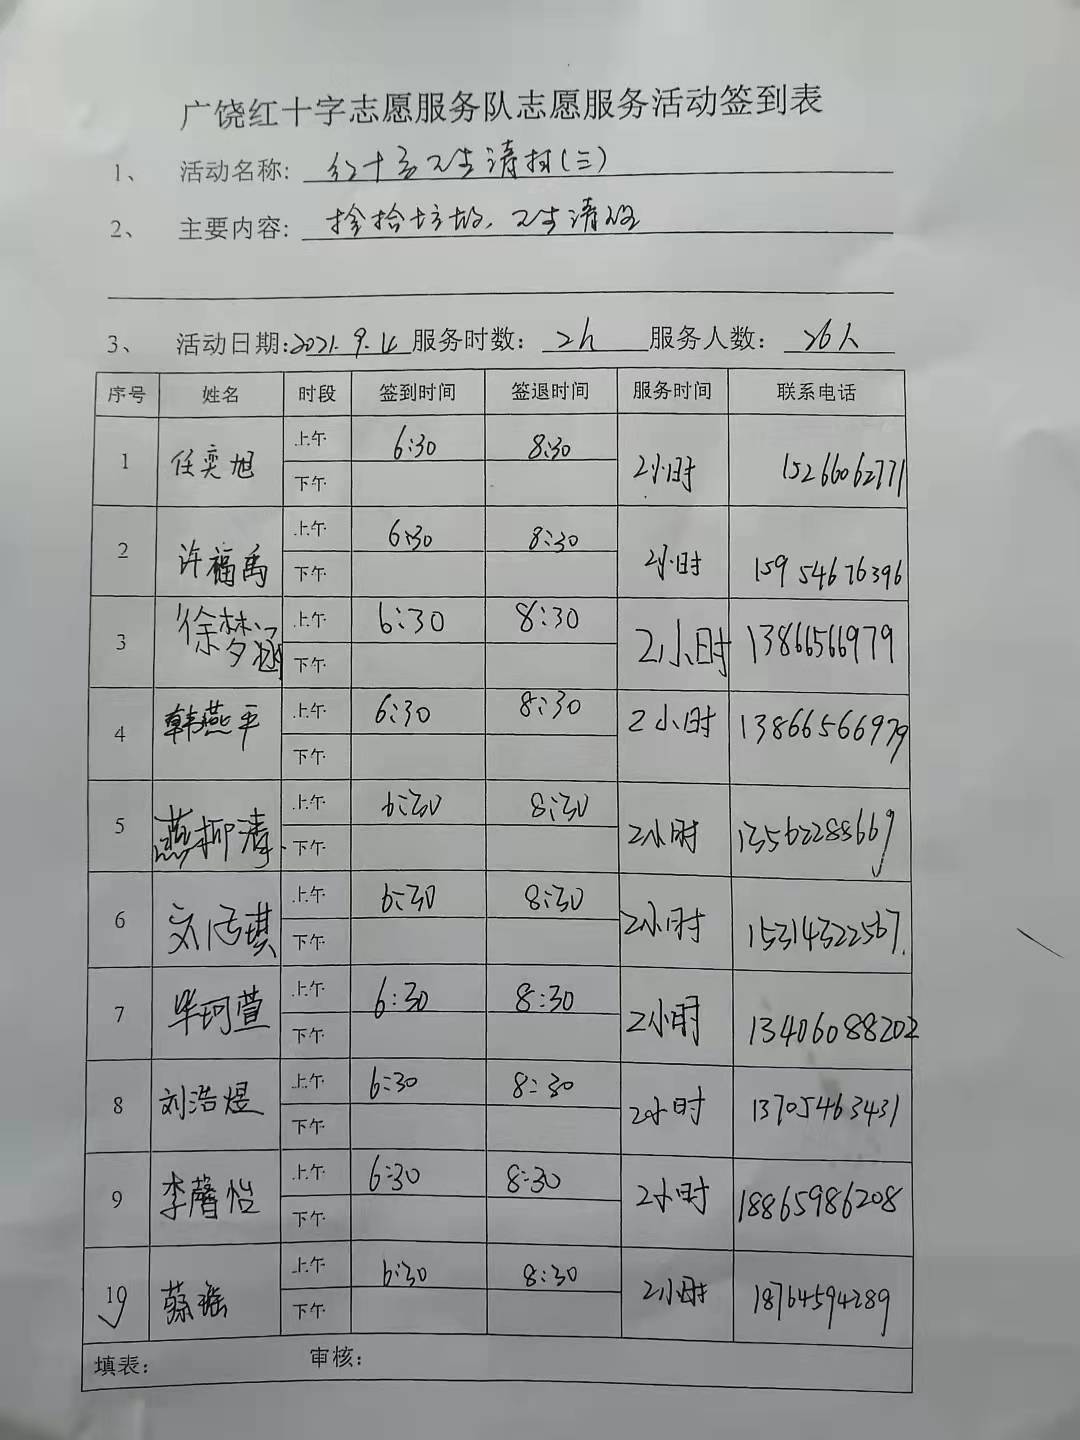 广饶红十字志愿服务队志愿服务活动签到表
1、 活动名称: 红十字卫生清村(三)
2、 主要内容: 捡拾垃圾,卫生清
3、 活动日期:2021.9.4 服务时数: 2h 服务人数: 26人
序号 姓名 时段 签到时间 签退时间 服务时间 联系电话
1 任奕旭 上午 6:30 8:30 2小时 15266062771
下午
2 许福禹 上午 6:30 8:30 2小时 15954676396
下午
3 徐梦涵 上午 6:30 8:30 2小时 13866566979
下午
4 韩燕平 上午 6:30 8:30 2小时 13866566979
下午
5 燕柳清 上午 6:30 8:30 2小时 13562288669
下午
6 刘琪 上午 6:30 8:30 2小时 15314322567
下午
7 毕珂萱 上午 6:30 8:30 2小时 13406088202
下午
8 刘浩煜 上午 6:30 8:30 2小时 13705463431
下午
9 李馨怡 上午 6:30 8:30 2小时 18865986208
下午
10 上午 6:30 8:30 2小时 18764594289
下午
填表: 审核: